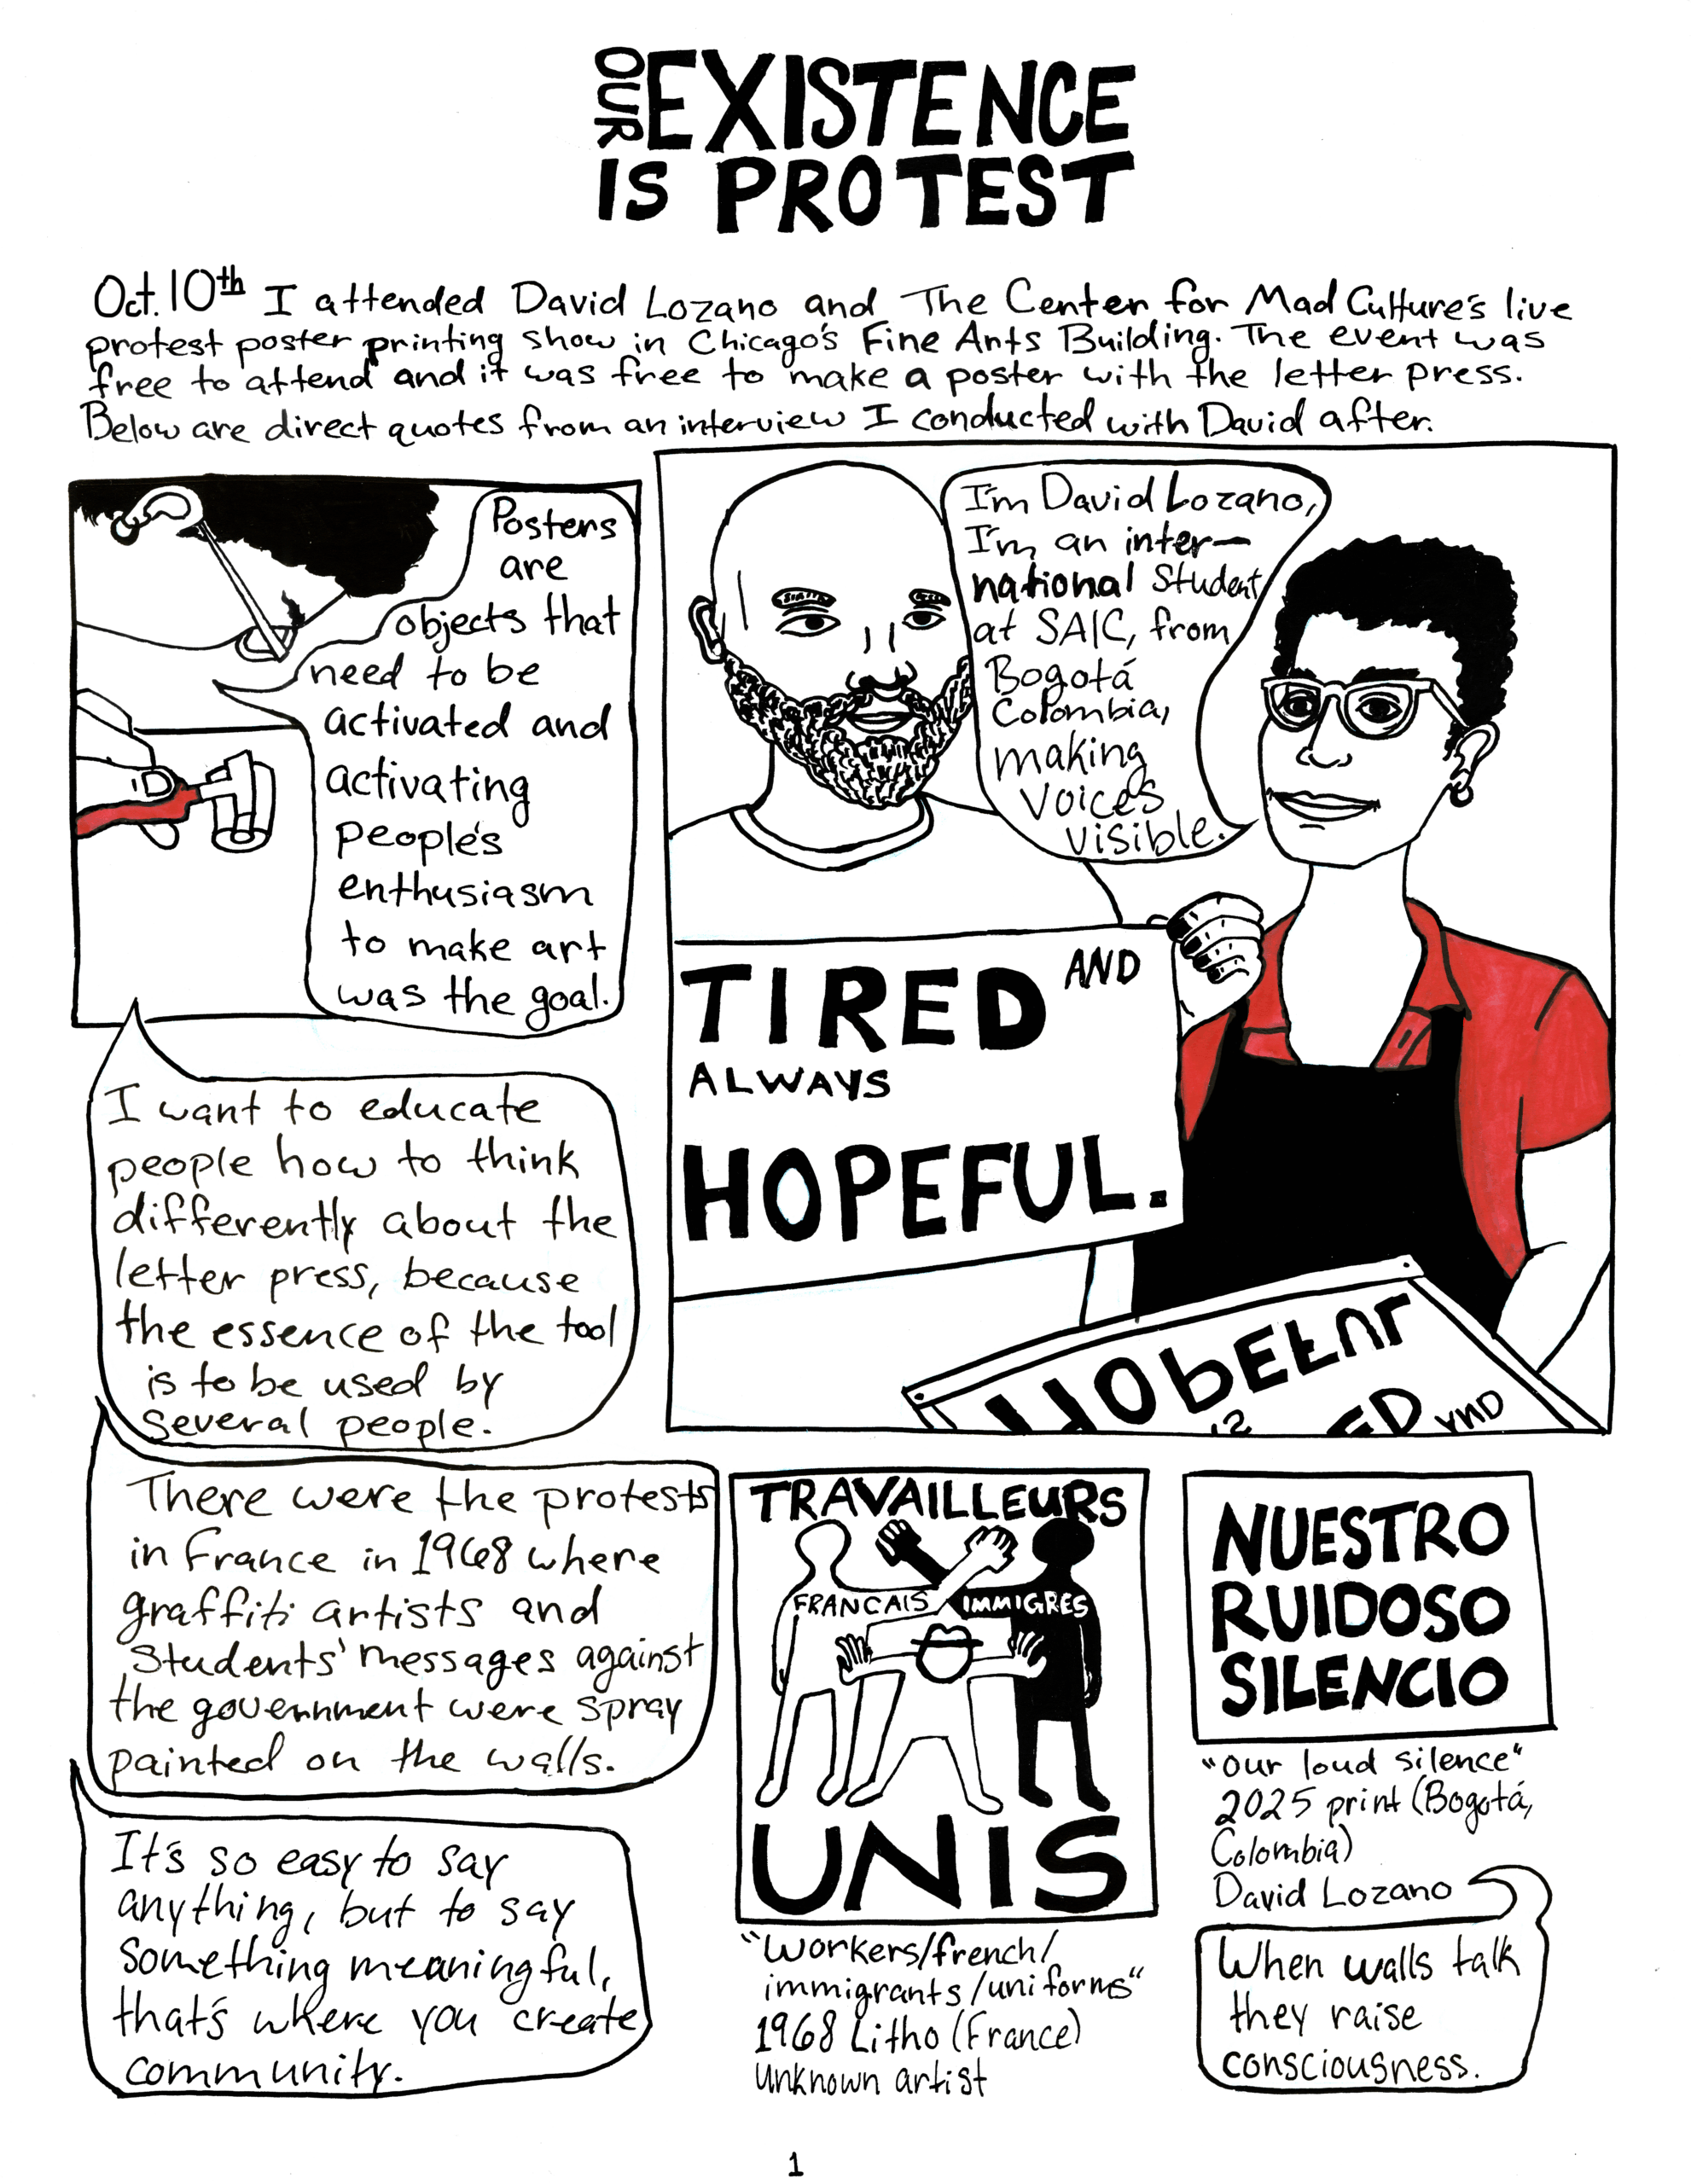 OUR EXISTENCE
IS PROTEST
Oct. 10th I attended David Lozano and The Center for Mad Culture's live
protest poster printing show in Chicago's Fine Arts Building. The event was
free to attend and it was free to make a poster with the letter press.
Below are direct quotes from an interview I conducted with David after.
Posters
are
objects that
need to be
activated and
activating
people's
enthusiasm
to make art
was the goal.
I'm David Lozano,
I'm an inter-
national Student
at SAIC, from
Bogotá
Colombia,
making
voices
visible.
TIRED AND
ALWAYS
HOPEFUL.
HOPEFUL
IS
ED AND
I want to educate
people how to think
differently about the
letter press, because
the essence of the tool
is to be used by
several people.
There were the protests
in France in 1968 where
graffiti artists and
students' messages against
the government were spray
painted on the walls.
It's so easy to say
anything, but to say
something meaningful,
that's where you create
community.
TRAVAILLEURS
FRANCAIS IMMIGRES
UNIS
"Workers/french/
immigrants/uniforms"
1968 Litho (France)
Unknown artist
NUESTRO
RUIDOSO
SILENCIO
"Our loud silence"
2025 print (Bogotá,
Colombia)
David Lozano
When walls talk
they raise
consciousness.
1